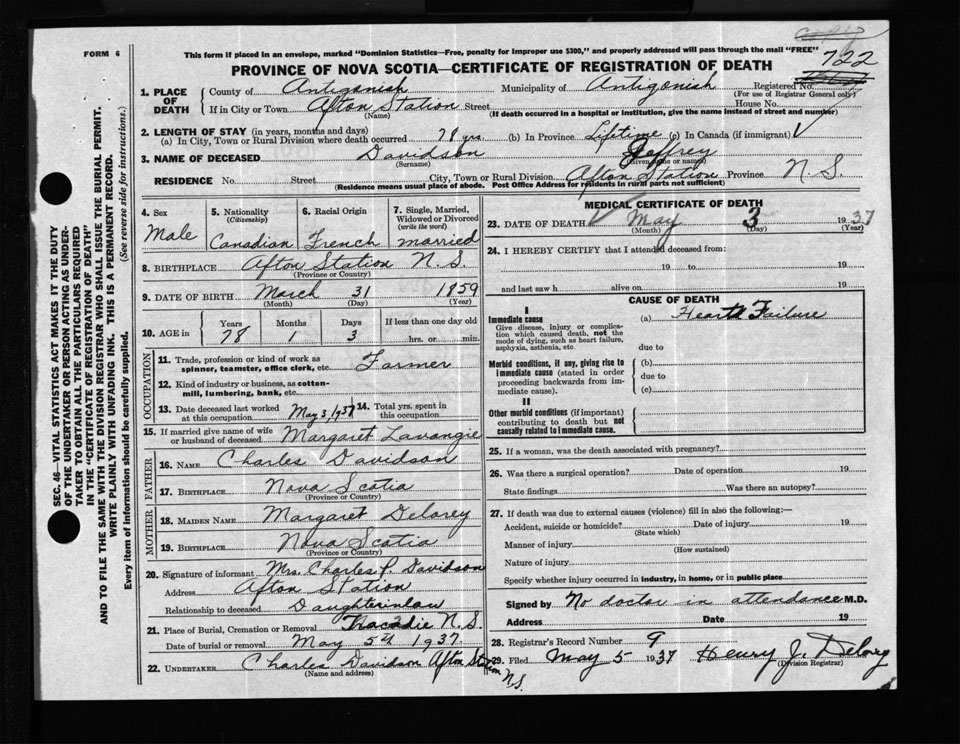 COPY
FORM 6
This form if placed in an envelope, marked "Dominion Statistics—Free, penalty for improper use $300," and properly addressed will pass through the mail "FREE"
722
PROVINCE OF NOVA SCOTIA—CERTIFICATE OF REGISTRATION OF DEATH
1. PLACE OF DEATH County of Antigonish Municipality of Antigonish Registered No.
(For use of Registrar General only)
If in City or Town Afton Station Street House No.
(Name) (If death occurred in a hospital or institution, give the name instead of street and number)
2. LENGTH OF STAY (in years, months and days)
(a) In City, Town or Rural Division where death occurred 78 yrs. (b) In Province Lifetime (c) In Canada (if immigrant)
3. NAME OF DECEASED Davidson Jeffrey
(Surname) (Given name or names)
RESIDENCE No. Street City, Town or Rural Division Afton Station Province N. S.
(Residence means usual place of abode. Post Office Address for residents in rural parts not sufficient)
4. Sex Male
5. Nationality (Citizenship) Canadian
6. Racial Origin French
7. Single, Married, Widowed or Divorced (write the word) married
8. BIRTHPLACE Afton Station N. S.
(Province or Country)
9. DATE OF BIRTH March 31 1859
(Month) (Day) (Year)
10. AGE in Years Months Days If less than one day old
78 1 3 hrs. or min.
OCCUPATION
11. Trade, profession or kind of work as spinner, teamster, office clerk, etc. Farmer
12. Kind of industry or business, as cotton-mill, lumbering, bank, etc.
13. Date deceased last worked at this occupation May 3, 1937 14. Total yrs. spent in this occupation
15. If married give name of wife or husband of deceased Margaret Lavangie
FATHER
16. NAME Charles Davidson
17. BIRTHPLACE Nova Scotia
(Province or Country)
MOTHER
18. MAIDEN NAME Margaret Delorey
19. BIRTHPLACE Nova Scotia
(Province or Country)
20. Signature of informant Mrs. Charles P. Davidson
Address Afton Station
Relationship to deceased Daughterinlaw
21. Place of Burial, Cremation or Removal Tracadie N. S.
Date of burial or removal May 5th 1937.
22. UNDERTAKER Charles Davidson Afton Station N.S.
(Name and address)
MEDICAL CERTIFICATE OF DEATH
23. DATE OF DEATH May 3 1937
(Month) (Day) (Year)
24. I HEREBY CERTIFY that I attended deceased from:
19 to 19
and last saw h alive on 19
CAUSE OF DEATH
I
Immediate cause (a) Heart Failure
Give disease, injury or complication which caused death, not the mode of dying, such as heart failure, asphyxia, asthenia, etc.
due to
Morbid conditions, if any, giving rise to immediate cause (stated in order proceeding backwards from immediate cause).
(b)
due to
(c)
II
Other morbid conditions (if important) contributing to death but not causally related to immediate cause.
25. If a woman, was the death associated with pregnancy?
26. Was there a surgical operation? Date of operation 19
State findings Was there an autopsy?
27. If death was due to external causes (violence) fill in also the following:—
Accident, suicide or homicide? Date of injury 19
(State which)
Manner of injury
(How sustained)
Nature of injury
Specify whether injury occurred in industry, in home, or in public place
Signed by No doctor in attendance M.D.
Address Date 19
28. Registrar's Record Number 9
29. Filed May 5 1937 Henry J. Delorey
(Division Registrar)
SEC. 46—VITAL STATISTICS ACT MAKES IT THE DUTY
OF THE UNDERTAKER OR PERSON ACTING AS UNDER-
TAKER TO OBTAIN ALL THE PARTICULARS REQUIRED
IN THE "CERTIFICATE OF REGISTRATION OF DEATH"
AND TO FILE THE SAME WITH THE DIVISION REGISTRAR WHO SHALL ISSUE THE BURIAL PERMIT.
WRITE PLAINLY WITH UNFADING INK. THIS IS A PERMANENT RECORD.
Every item of information should be carefully supplied. (See reverse side for instructions.)